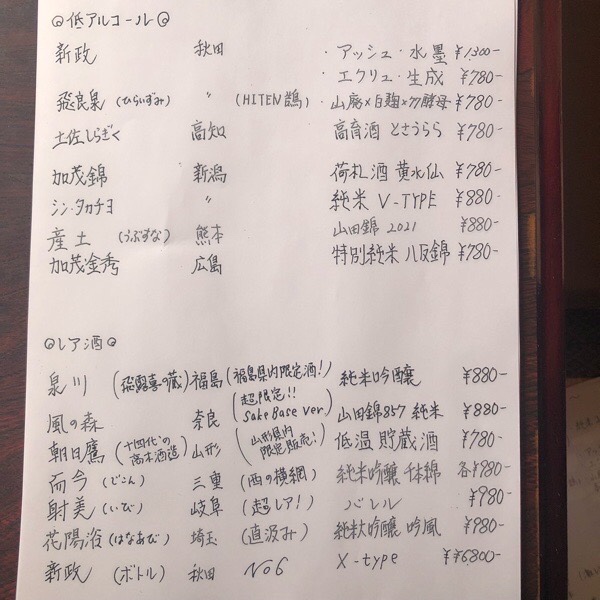 ◎低アルコール◎
新政 秋田 ・アッシュ・水墨 ¥1300-
・エクリュ・生成 ¥780-
飛良泉(ひらいずみ) 〃 (HITEN 鵠)・山廃×白麹×77酵母 ¥780-
土佐しらぎく 高知 高育酒 とさうらら ¥780-
加茂錦 新潟 荷札酒 黄水仙 ¥780-
シン・タカチヨ 〃 純米 V-TYPE ¥880-
産土(うぶすな) 熊本 山田錦 2021 ¥880-
加茂金秀 広島 特別純米 八反錦 ¥780-
◎レア酒◎
泉川 (飛露喜の蔵) 福島 (福島県内限定酒!) 純米吟醸 ¥880-
風の森 奈良 (超限定!! Sake Base ver.) 山田錦857 純米 ¥880-
朝日鷹 (十四代の高木酒造) 山形 (山形県内限定販売!) 低温貯蔵酒 ¥780-
而今 (じこん) 三重 (西の横綱) 純米吟醸 千本錦 各¥980-
射美 (いび) 岐阜 (超レア!) バレル ¥980-
花陽浴 (はなあび) 埼玉 (直汲み) 純米大吟醸 吟風 ¥980-
新政 (ボトル) 秋田 No6 X-type ¥¥6800-